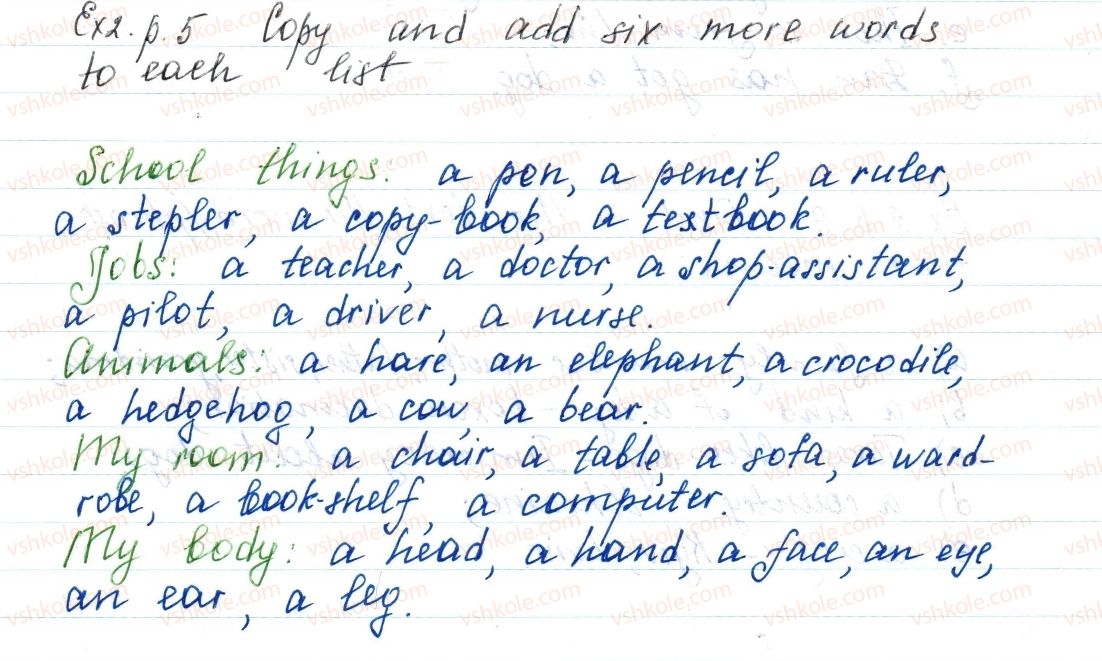 Ex2. p. 5 Copy and add six more words
to each list
School things: a pen, a pencil, a ruler,
a stepler, a copy-book, a textbook.
Jobs: a teacher, a doctor, a shop-assistant,
a pilot, a driver, a nurse.
Animals: a hare, an elephant, a crocodile,
a hedgehog, a cow, a bear.
My room: a chair, a table, a sofa, a ward-
robe, a book-shelf, a computer.
My body: a head, a hand, a face, an eye,
an ear, a leg.